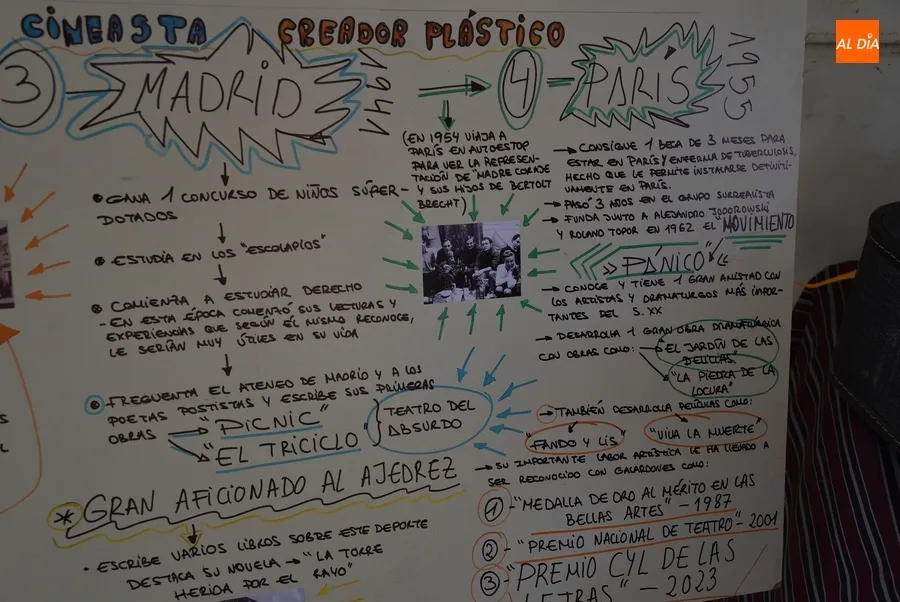 CINEASTA
CREADOR PLÁSTICO
AL DÍA
3
MADRID
1941
• GANA 1 CONCURSO DE NIÑOS SÚPER-
DOTADOS
• ESTUDIA EN LOS "ESCOLAPIOS"
• COMIENZA A ESTUDIAR DERECHO
- EN ESTA ÉPOCA COMENZÓ SUS LECTURAS Y
EXPERIENCIAS QUE SEGÚN ÉL MISMO RECONOCE,
LE SERÍAN MUY ÚTILES EN SU VIDA
• FRECUENTA EL ATENEO DE MADRID Y A LOS
POETAS POSTISTAS Y ESCRIBE SUS PRIMERAS
OBRAS
"PICNIC"
"EL TRICICLO"
TEATRO DEL
ABSURDO
* GRAN AFICIONADO AL AJEDREZ
• ESCRIBE VARIOS LIBROS SOBRE ESTE DEPORTE
DESTACA SU NOVELA → "LA TORRE
HERIDA POR EL RAYO"
(EN 1954 VIAJA A
PARÍS EN AUTOESTOP
PARA VER LA REPRESEN-
TACIÓN DE "MADRE CORAJE
Y SUS HIJOS DE BERTOLT
BRECHT)
4
PARÍS
1955
→ CONSIGUE 1 BECA DE 3 MESES PARA
ESTAR EN PARÍS Y ENFERMA DE TUBERCULOSIS,
HECHO QUE LE PERMITE INSTALARSE
EN PARÍS.
→ PASÓ 3 AÑOS EN EL GRUPO SURREALISTA
→ FUNDA JUNTO A ALEJANDRO JODOROWSKI
Y ROLAND TOPOR EN 1962 EL "MOVIMIENTO
PÁNICO"
→ CONOCE Y TIENE 1 GRAN AMISTAD CON
LOS ARTISTAS Y DRAMATURGOS MÁS IMPOR-
TANTES DEL S. XX
→ DESARROLLA 1 GRAN OBRA DRAMATÚRGICA
CON OBRAS COMO:
"EL JARDÍN DE LAS
DELICIAS"
"LA PIEDRA DE LA
LOCURA"
→ TAMBIÉN DESARROLLA PELÍCULAS COMO:
"FANDO Y LIS"
"VIVA LA MUERTE"
→ SU IMPORTANTE LABOR ARTÍSTICA LE HA LLEVADO A
SER RECONOCIDO CON GALARDONES COMO:
1 - "MEDALLA DE ORO AL MÉRITO EN LAS
BELLAS ARTES" - 1987
2 - "PREMIO NACIONAL DE TEATRO" - 2001
3 - "PREMIO CYL DE LAS
LETRAS" - 2023